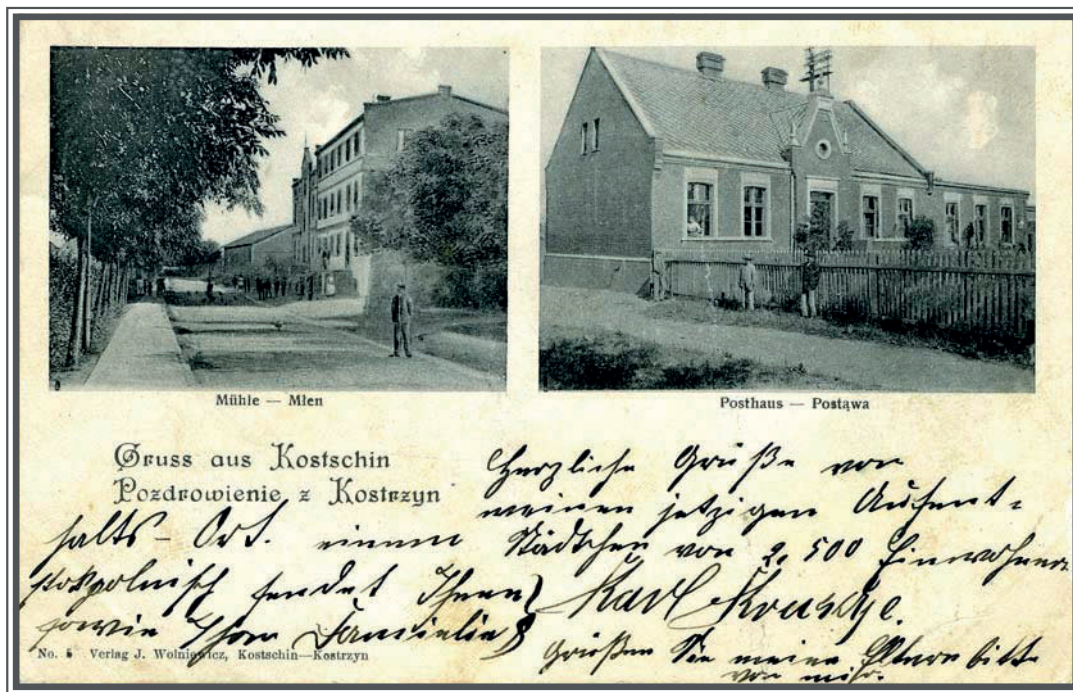 Mühle — Młen
Posthaus — Postąwa
Gruss aus Kostschin
Pozdrowienie z Kostrzyn
Herzliche Grüße von
meinen jetzigen Aufent=
halts-Ort. einem Städtchen von 2,500 Einwohner
stokpolnisch sendet Ihnen
sowie Ihrer Familie
Karl
Grüßen Sie meine Eltern bitte
von mir.
No. 5 Verlag J. Wolniewicz, Kostschin—Kostrzyn